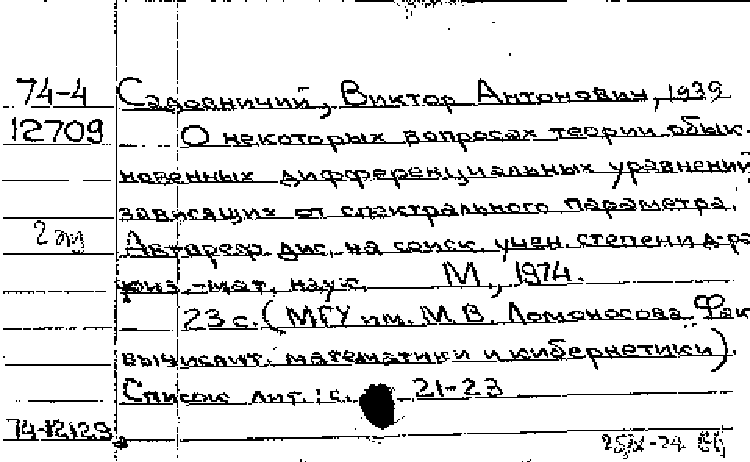 74-4 Садовничий, Виктор Антонович, 1939
12709 О некоторых вопросах теории обык-
новенных дифференциальных уравнений
зависящих от спектрального параметра.
2 эк Автореф. дис. на соиск. учен. степени д-ра
физ.-мат. наук. М., 1974.
23 с. (МГУ им. М.В. Ломоносова. Фак
вычислит. математики и кибернетики).
Список лит.: с. 21-23
74-12129